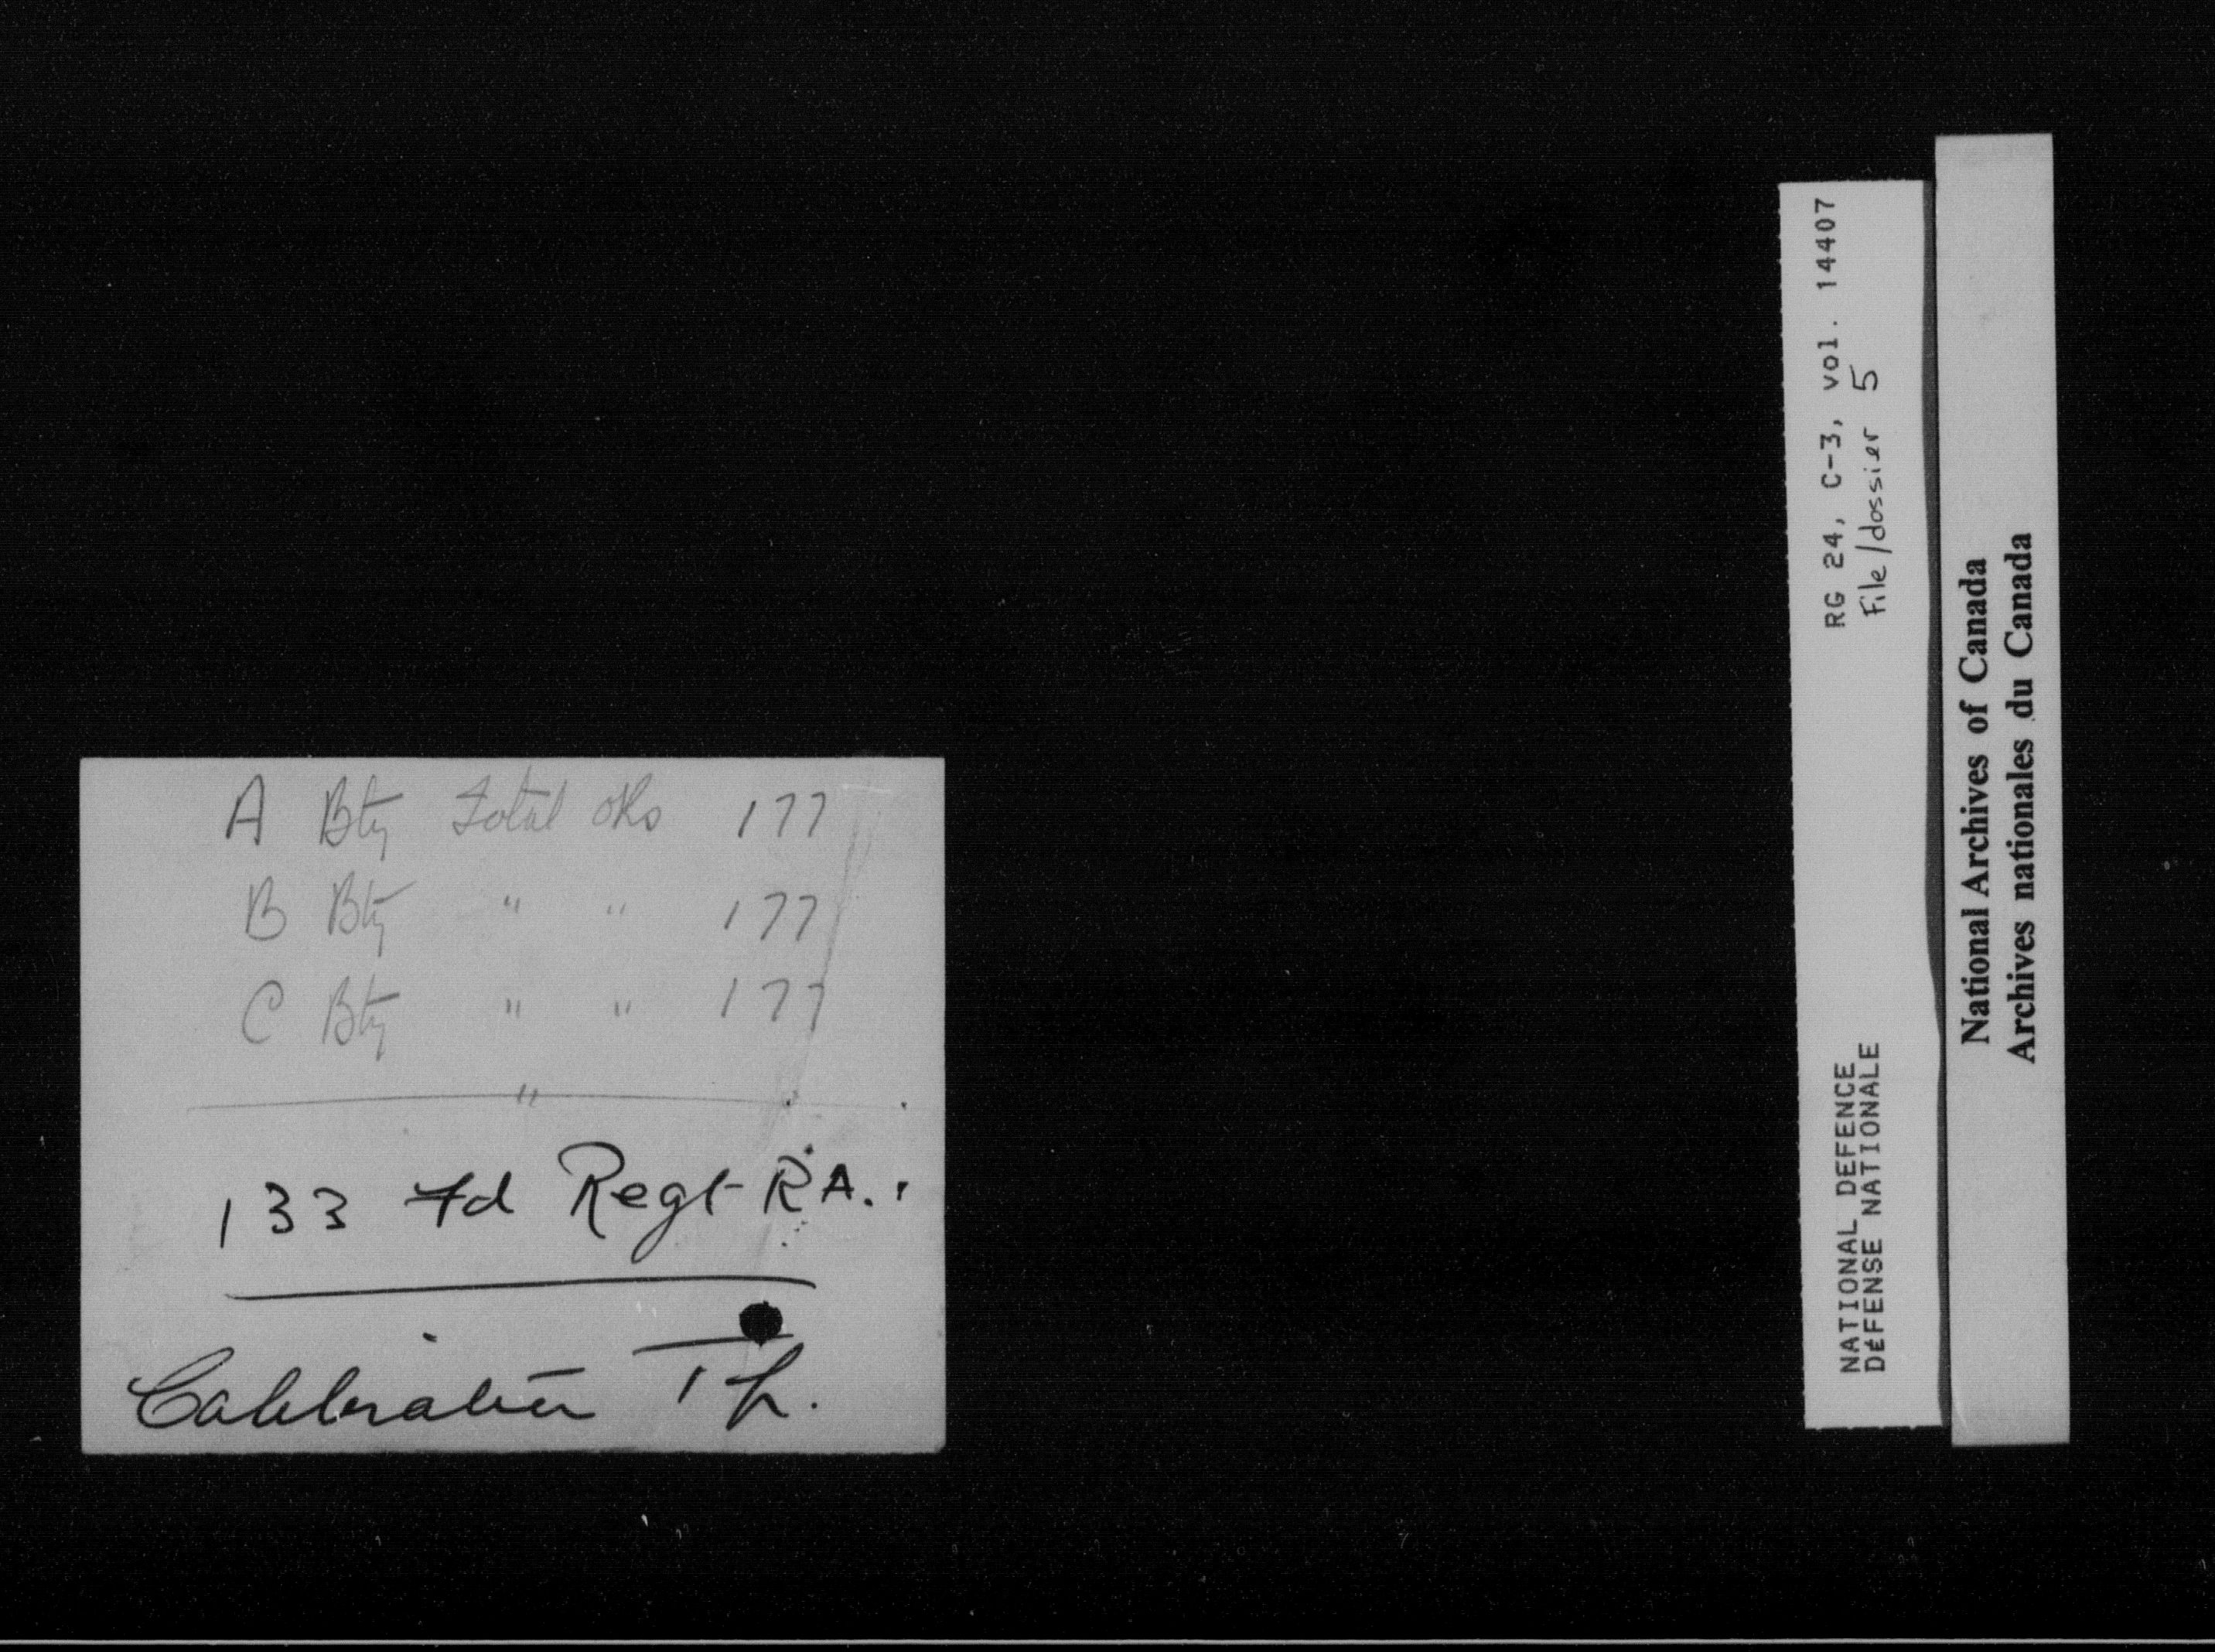 A Bty Total ORs 177
B Bty " " 177
C Bty " " 177
"
133 Fd Regt R.A.
Calibration Tp.
RG 24, C-3, vol. 14407
File/dossier 5
NATIONAL DEFENCE
DéFENSE NATIONALE
National Archives of Canada
Archives nationales du Canada